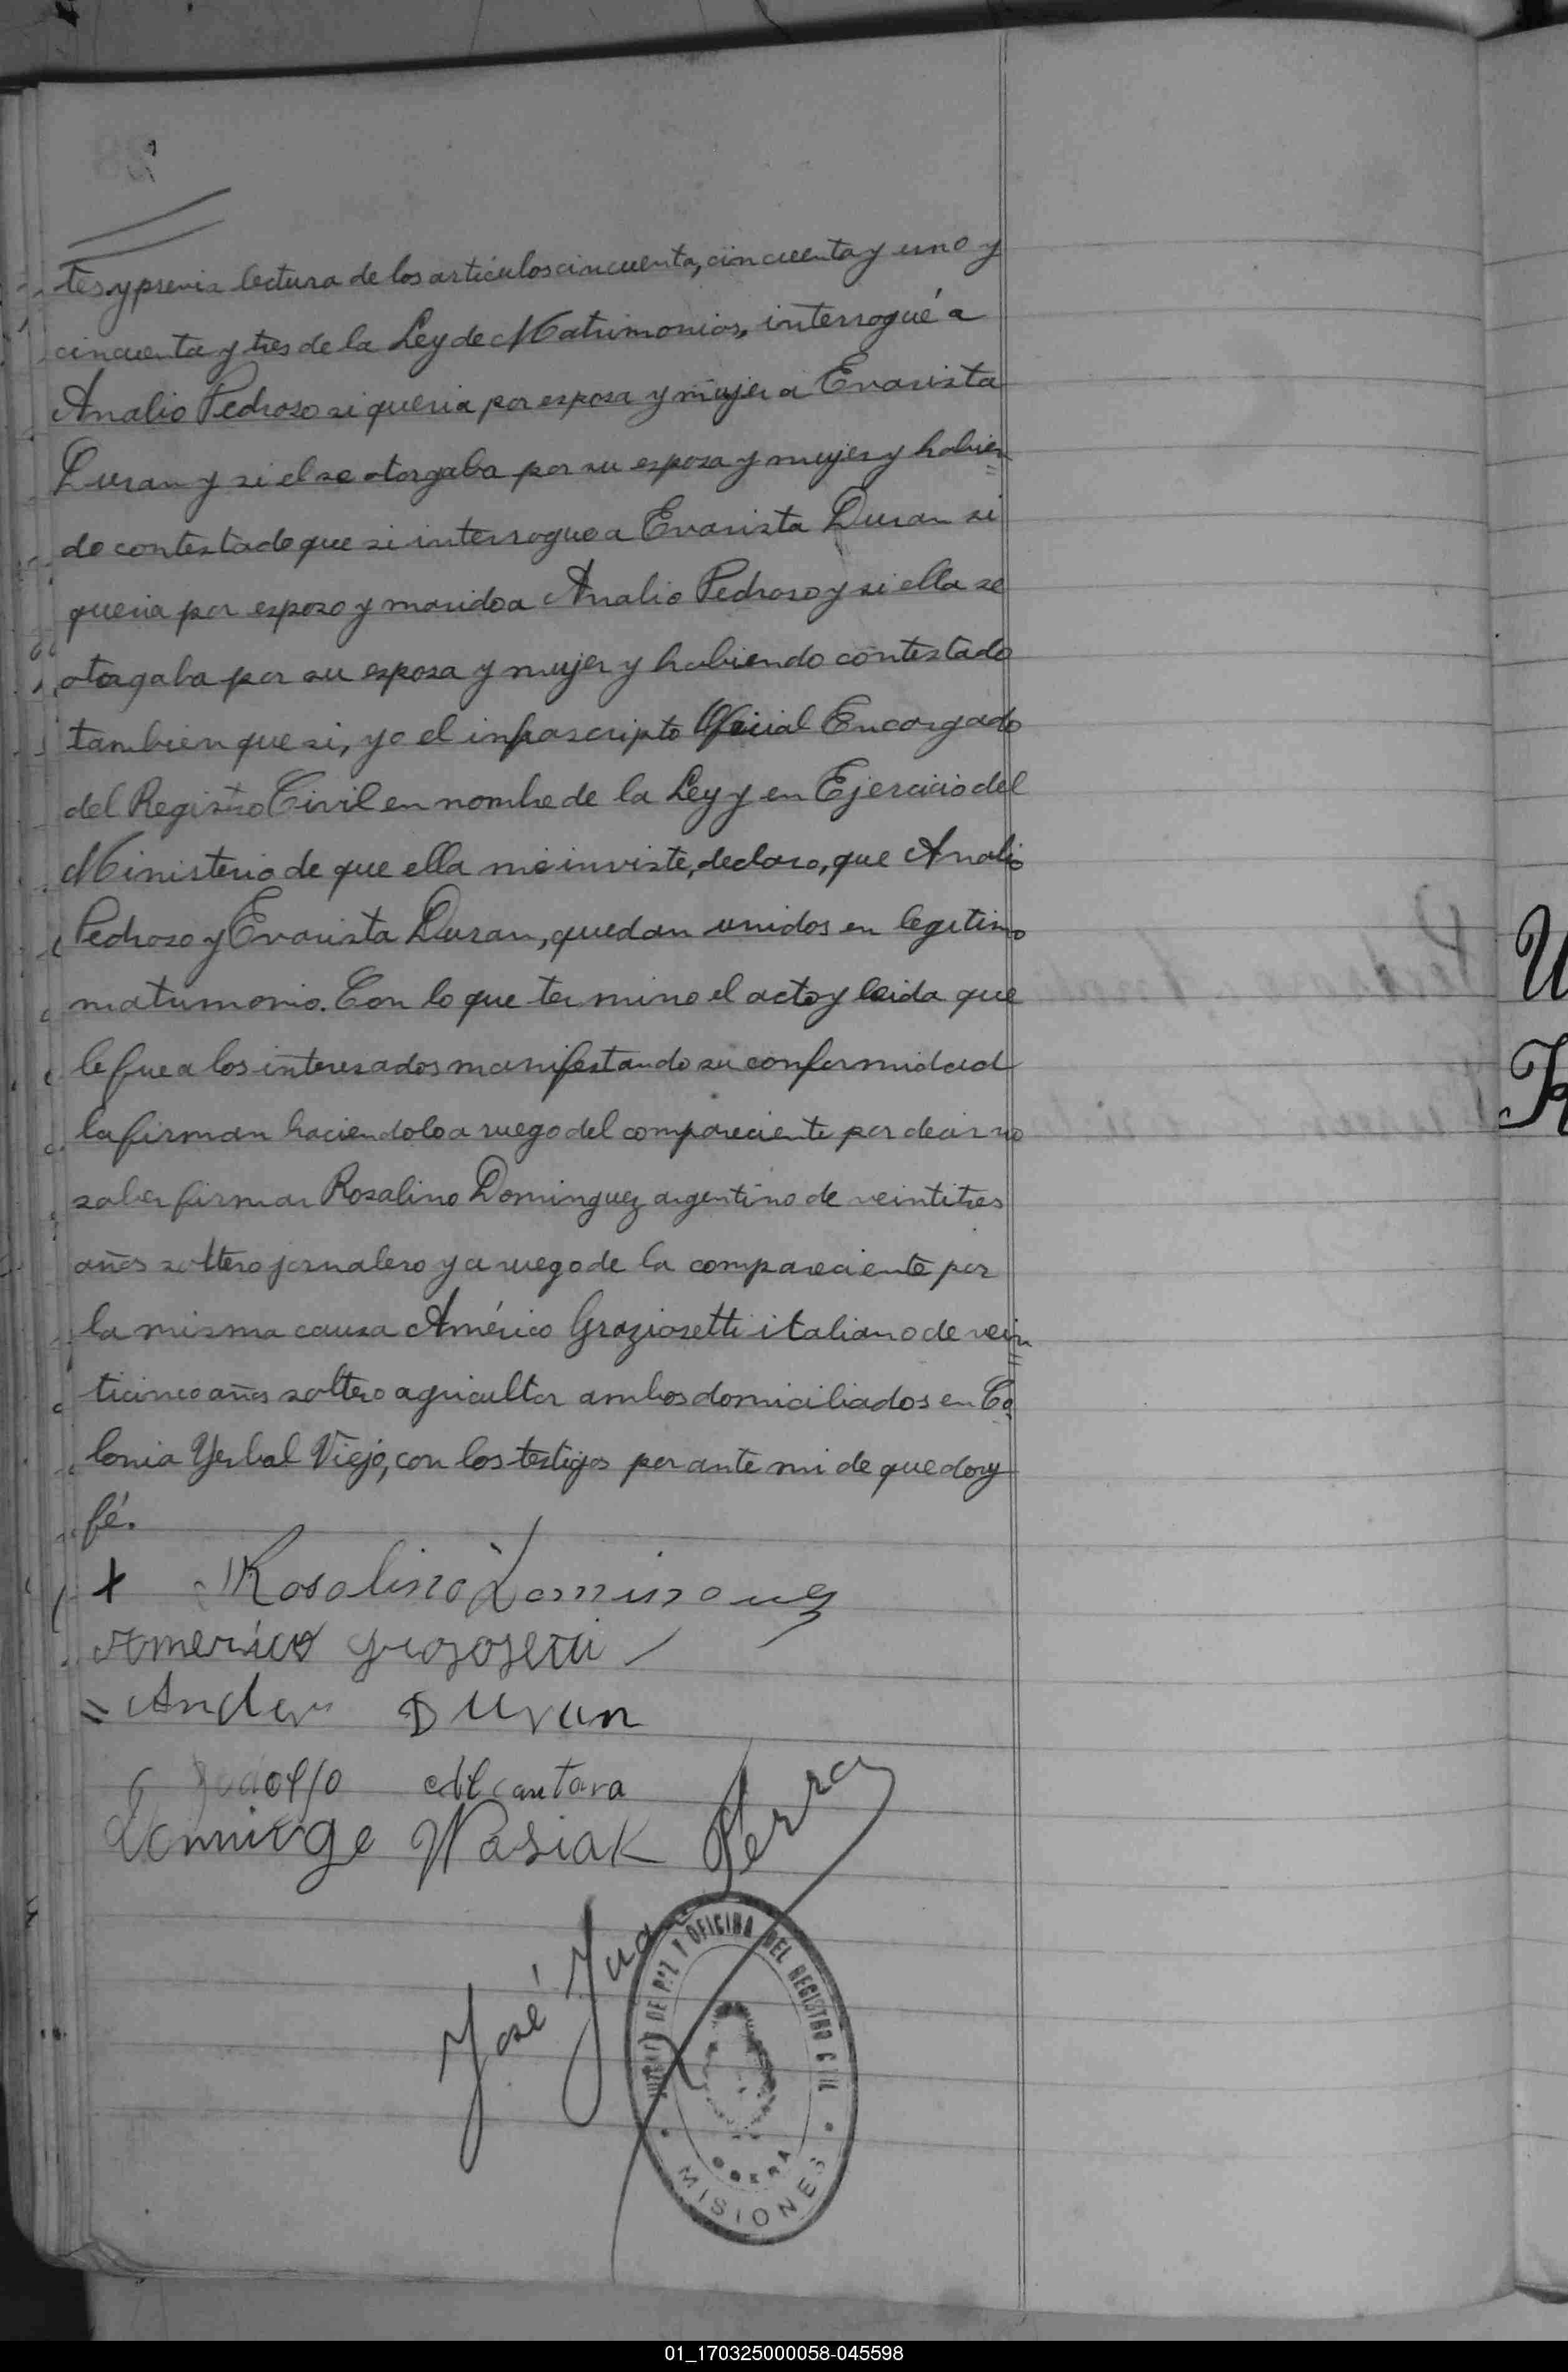 tes y previa lectura de los articulos cincuenta, cincuenta y uno y
cincuenta y tres de la Ley de Matrimonios, interrogué a
Analio Pedroso si queria por esposa y mujer a Evarista
Duran y si el se otorgaba por su esposa y mujer y habien=
do contestado que si interrogue a Evarista Duran si
queria por esposo y marido a Analio Pedroso y si ella se
otorgaba por su esposa y mujer y habiendo contestado
tambien que si, yo el infrascripto Oficial Encargado
del Registro Civil en nombre de la Ley y en Ejercicio del
Ministerio de que ella me inviste, declaro, que Analio
Pedroso y Evarista Duran, quedan unidos en legitimo
matrimonio. Con lo que termino el acto y leida que
le fue a los interesados manifestando su conformidad
la firman haciendolo a ruego del compareciente por decir no
saber firmar Rosalino Dominguez argentino de veintitres
años soltero jornalero y a ruego de la compareciente por
la misma causa Américo Graziosetti italiano de vein=
ticinco años soltero agricultor ambos domiciliados en Co
lonia Yerbal Viejo, con los testigos por ante mi de que doy
fé.
+ Rosalino Dominguez
Americo
Duran
Alcantara
Wasiak
José Juan
JUZGADO DE PAZ Y OFICINA DEL REGISTRO CIVIL
OBERA
MISIONES
01_170325000058-045598